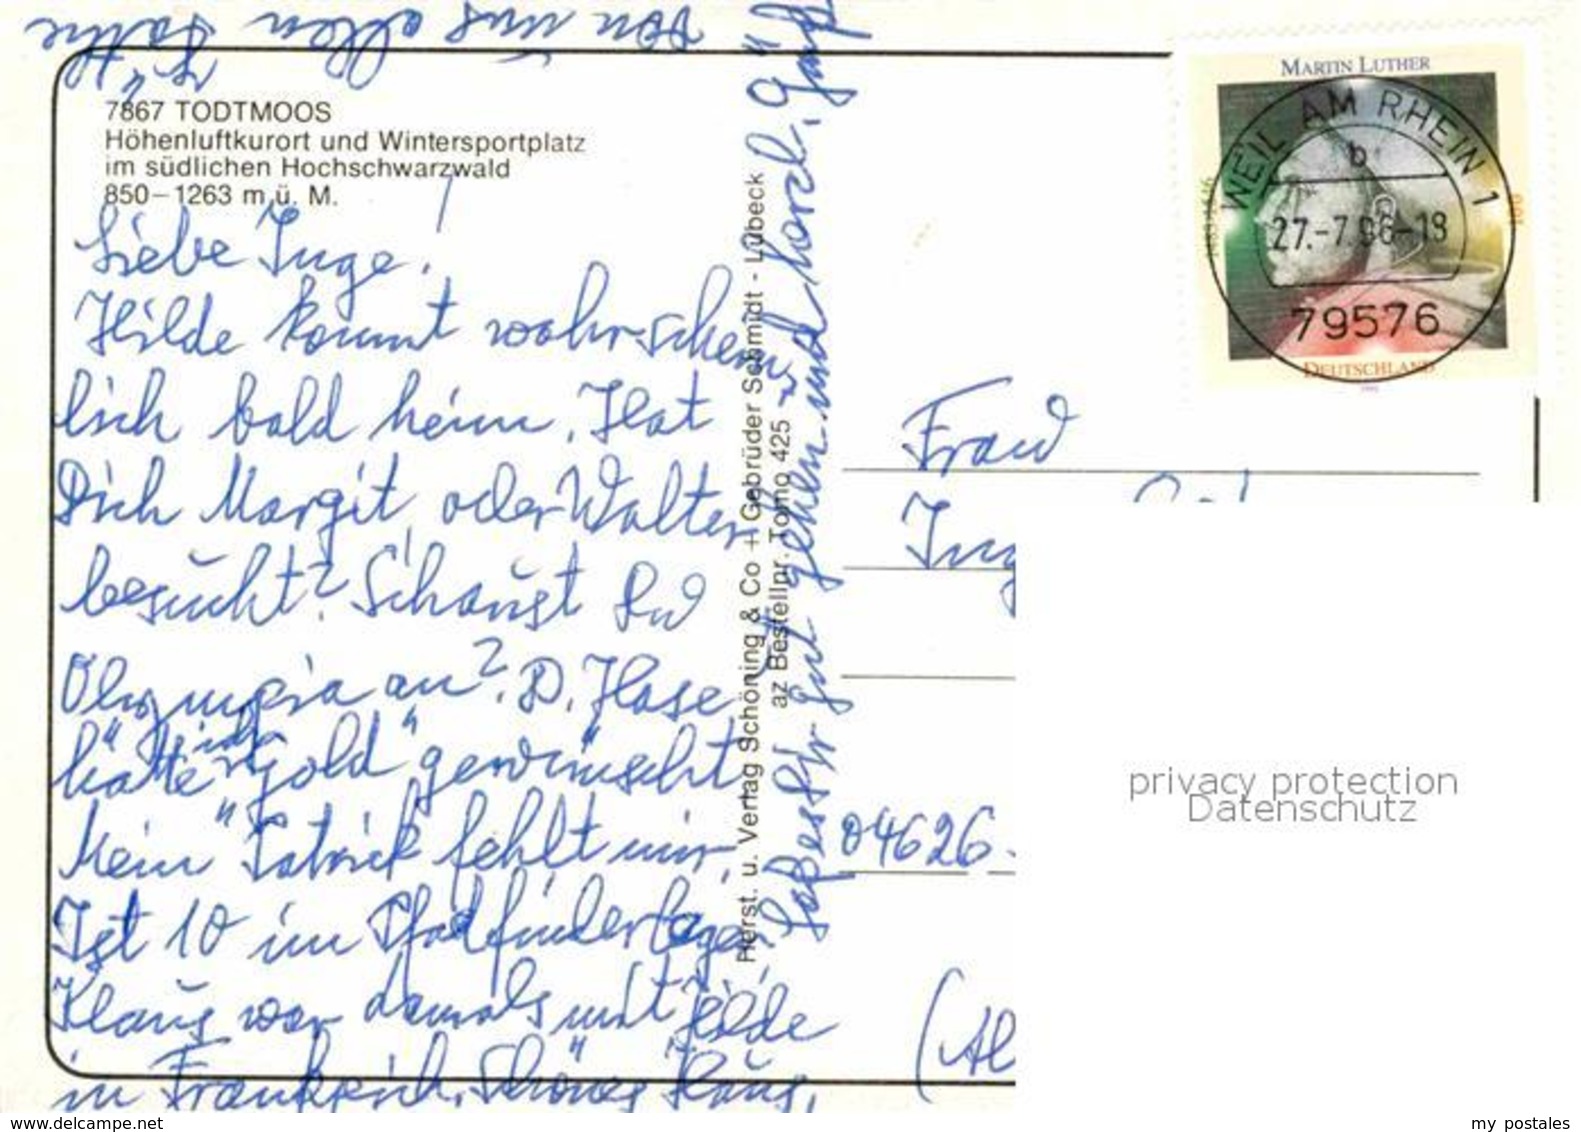 7867 TODTMOOS
Höhenluftkurort und Wintersportplatz
im südlichen Hochschwarzwald
850–1263 m ü. M.
Liebe Inge!
Hilde kommt wahrschein-
lich bald heim. Hat
Dich Margit oder Walter
besucht? Schaust Du
Olympia an? D. Hase
hätte ich "Gold" gewünscht
Mein Patrick fehlt mir,
Ist 10 im Pfadfinderlager,
Klaus war damals mit Hilde
in Frankreich. Schönes Haus,
Laß es Dir gut gehen und
von uns allen
Herst. u. Verlag Schöning & Co + Gebrüder Schmidt - Lübeck
az Bestellnr. Tomo 425
MARTIN LUTHER
100
DEUTSCHLAND
WEIL AM RHEIN 1
b
27.-7.96-18
79576
Frau
Ing
04626
(Al
privacy protection
Datenschutz
www.delcampe.net
my postales